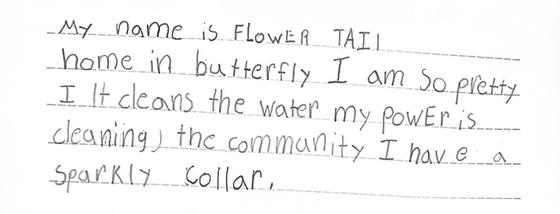 My name is FLowER TAIl
home in butterfly I am so pretty
I It cleans the water my powEr is
cleaning) the community I have a
sparkly collar.